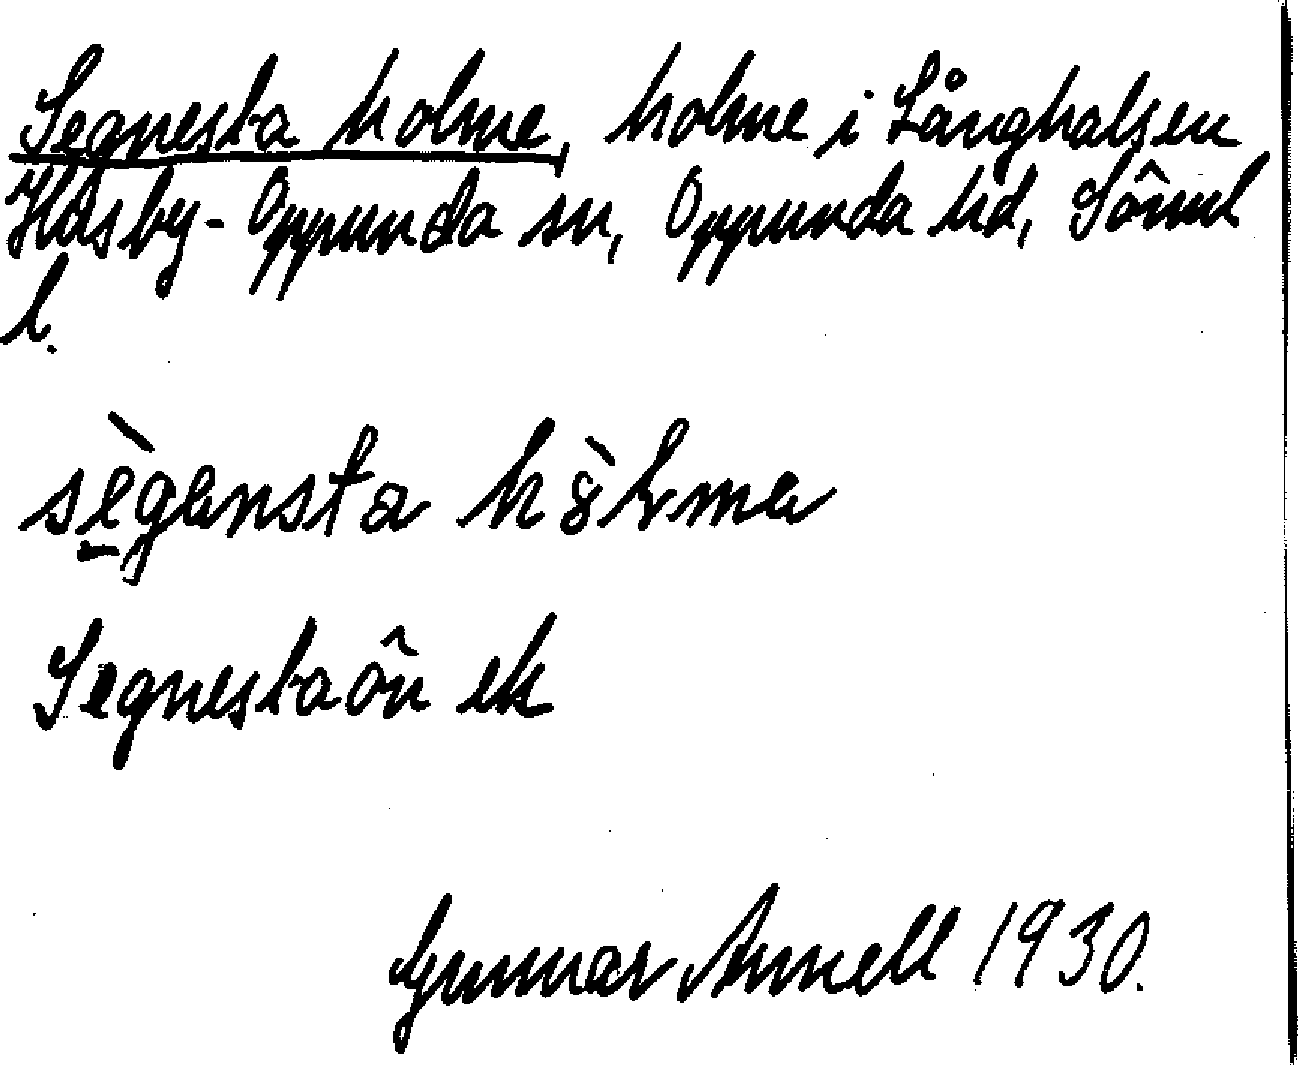 Segnesta holme, holme i Långhalsen
Husby-Oppunda sn, Oppunda hd, Sörml
l.
sègansta hòlma
Segnestaön ek
Gunnar Annell 1930.